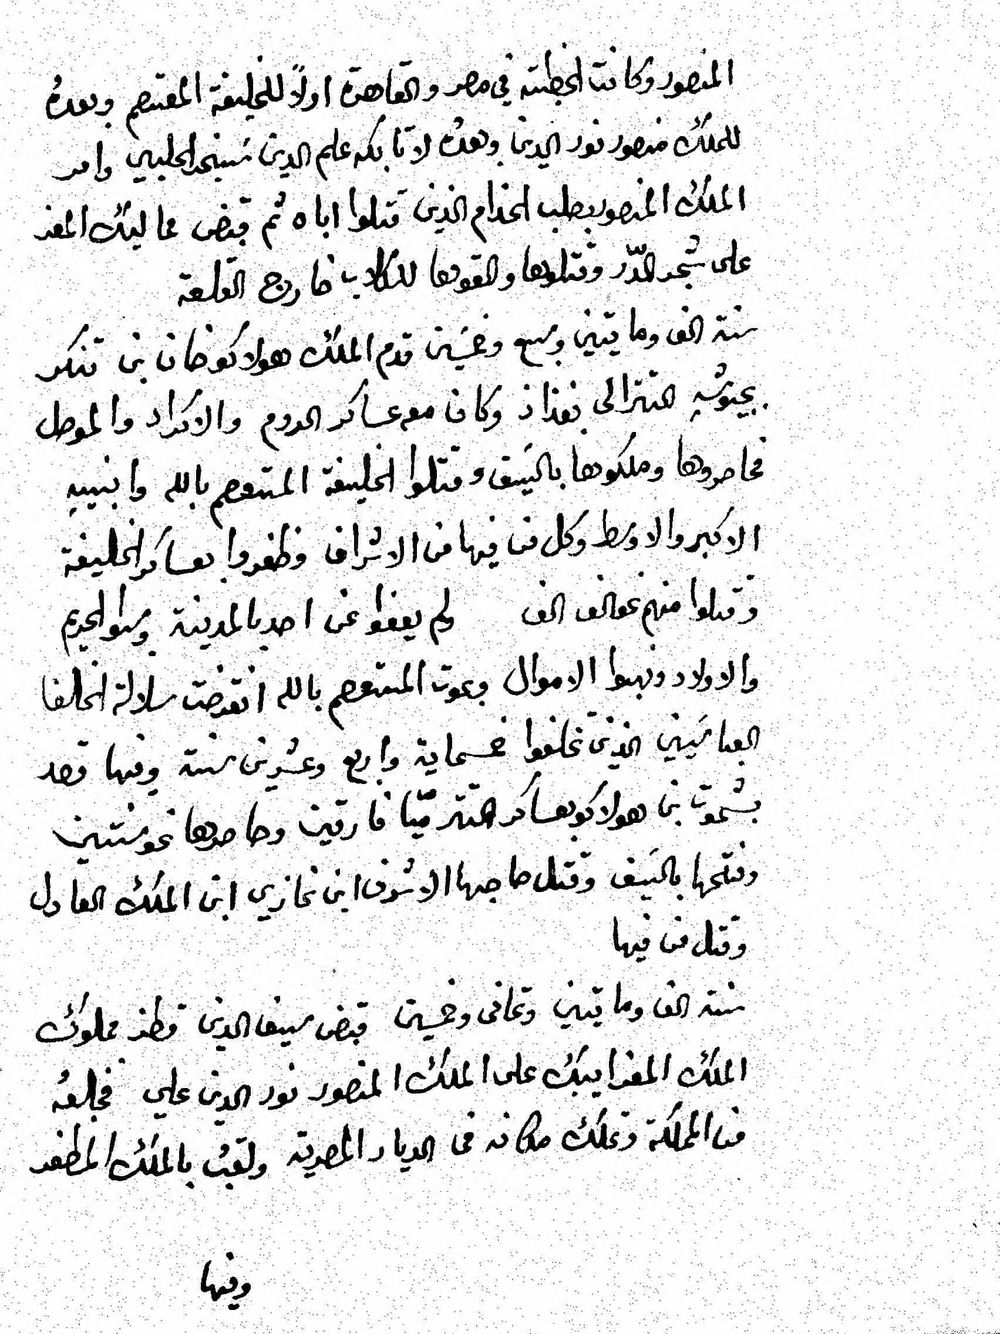 المنصور وكانت الخطبة في مصر والقاهرة اولاً للخليفة المعتصم وبعده
للملك منصور نور الدين وبعده لاتابكه علم الدين سنجر الحلبي وامر
الملك المنصور بصلب الخدام الذين قتلوا اباه ثم قبض مماليك المعز
على شجر الدّر وقتلوها والقوها للكلاب خارج القلعة
سنة الف ومايتين وسبع وخمسين قدم الملك هولاكو خان بن تنكر
بجيوشهِ التتر الى بغداد وكان معه عساكر الروم والاكراد والموصل
فحاصروها وملكوها بالسيف وقتلوا الخليفة المستعصم بالله وابنيهِ
الاكبر والاوسط وكل من فيها من الاشراف وظفروا بعساكر الخليفة
وقتلوا منهم نحو الف الف ولم يعفوا عن احد بالمدينة وسبوا الحريم
والاولاد ونهبوا الاموال وبموت المستعصم بالله انقرضت سلالة الخلفا
العباسيين الذين تخلفوا خمسماية واربع وعشرين سنة وفيها قصد
بشموت بن هولاكو بعساكر التتر ميّا فارقين وحاصرها نحو سنتين
وفتحها بالسيف وقتل صاحبها الاشرف ابن غازي ابن الملك العادل
وقتل من فيها
سنة الف ومايتين وثماني وخمسين قبض سيف الدين قطز مملوك
الملك المعز ايبك على الملك المنصور نور الدين علي فخلعهُ
من المملكة وتملك مكانه في الديار المصرية ولقب بالملك المظفر
وفيها